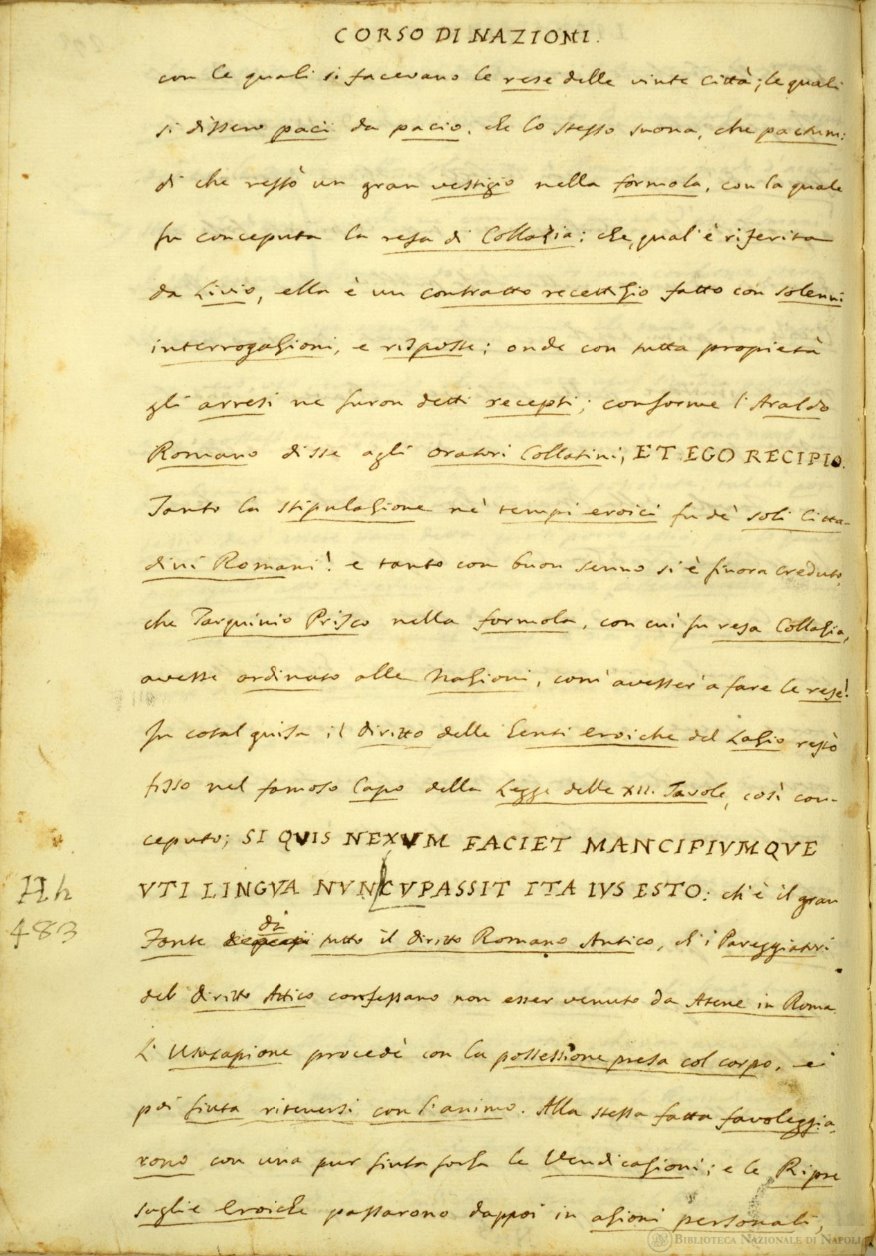 CORSO DI NAZIONI.
con le quali si facevano le rese delle vinte Città; le quali
si dissero paci da pacio, che lo stesso suona, che pactum:
di che restò un gran vestigio nella formola, con la quale
fu conceputa la resa di Collazia; che, qual'è riferita
da Livio, ella è un contratto recettizio fatto con solenni
interrogazioni, e risposte; onde con tutta propietà
gli arresi ne furon detti recepti; conforme l'Araldo
Romano disse agli oratori Collatini, ET EGO RECIPIO.
Tanto la stipulazione ne' tempi eroici fu de' soli Citta-
dini Romani! e tanto con buon senno si è finora creduto,
che Tarquinio Prisco nella formola, con cui fu resa Collazia,
avesse ordinato alle Nazioni, com'avesser'a fare le rese!
In cotal guisa il diritto delle Genti eroiche del Lazio restò
fisso nel famoso Capo della Legge delle XII. Tavole, così con-
ceputo; SI QVIS NEXVM FACIET MANCIPIVMQVE
VTI LINGVA NVNCVPASSIT ITA IVS ESTO: ch'è il gran
Hh
483
Fonte di tutto il diritto Romano Antico, ch'i Pareggiatori
del diritto Attico confessano non esser venuto da Atene in Roma
L'Usucapione procedè con la possessione presa col corpo, e
poi finta ritenersi con l'animo. Alla stessa fatta favoleggia-
rono con una pur finta forza le Vendicazioni; e le Ripre
saglie Eroiche passarono dappoi in azioni personali,
BIBLIOTECA NAZIONALE DI NAPOLI